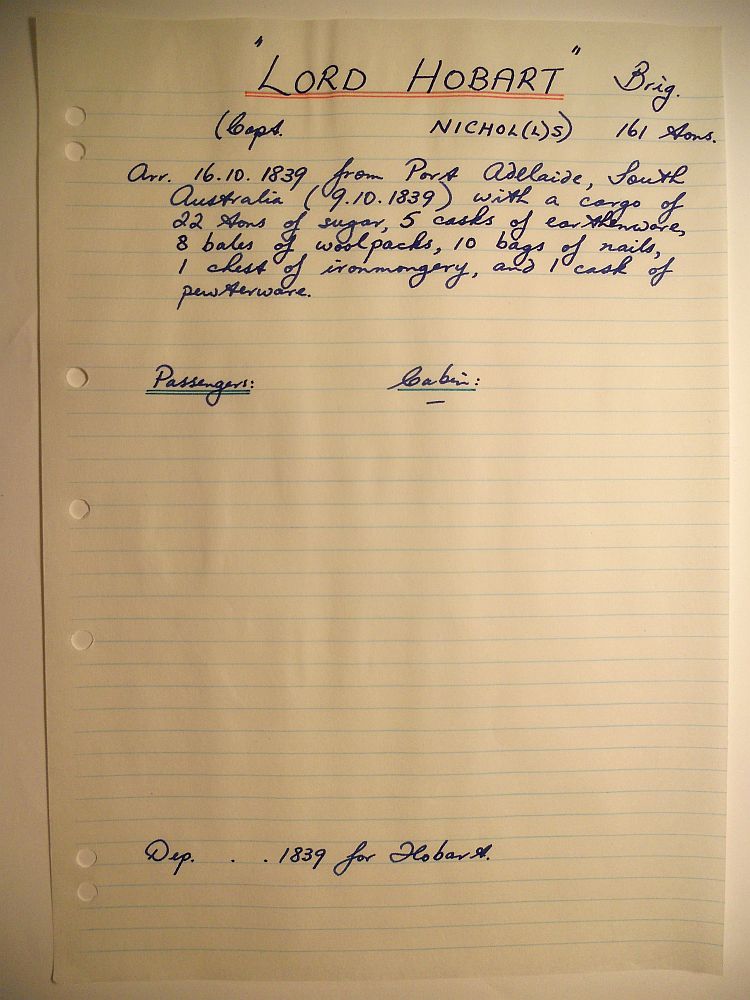 "LORD HOBART" Brig.
(Capt. NICHOL(L)S) 161 tons.
Arr. 16.10.1839 from Port Adelaide, South
Australia (9.10.1839) with a cargo of
22 tons of sugar, 5 casks of earthenware,
8 bales of woolpacks, 10 bags of nails,
1 chest of ironmongery, and 1 cask of
pewterware.
Passengers: Cabin:
—
Dep. . . 1839 for Hobart.